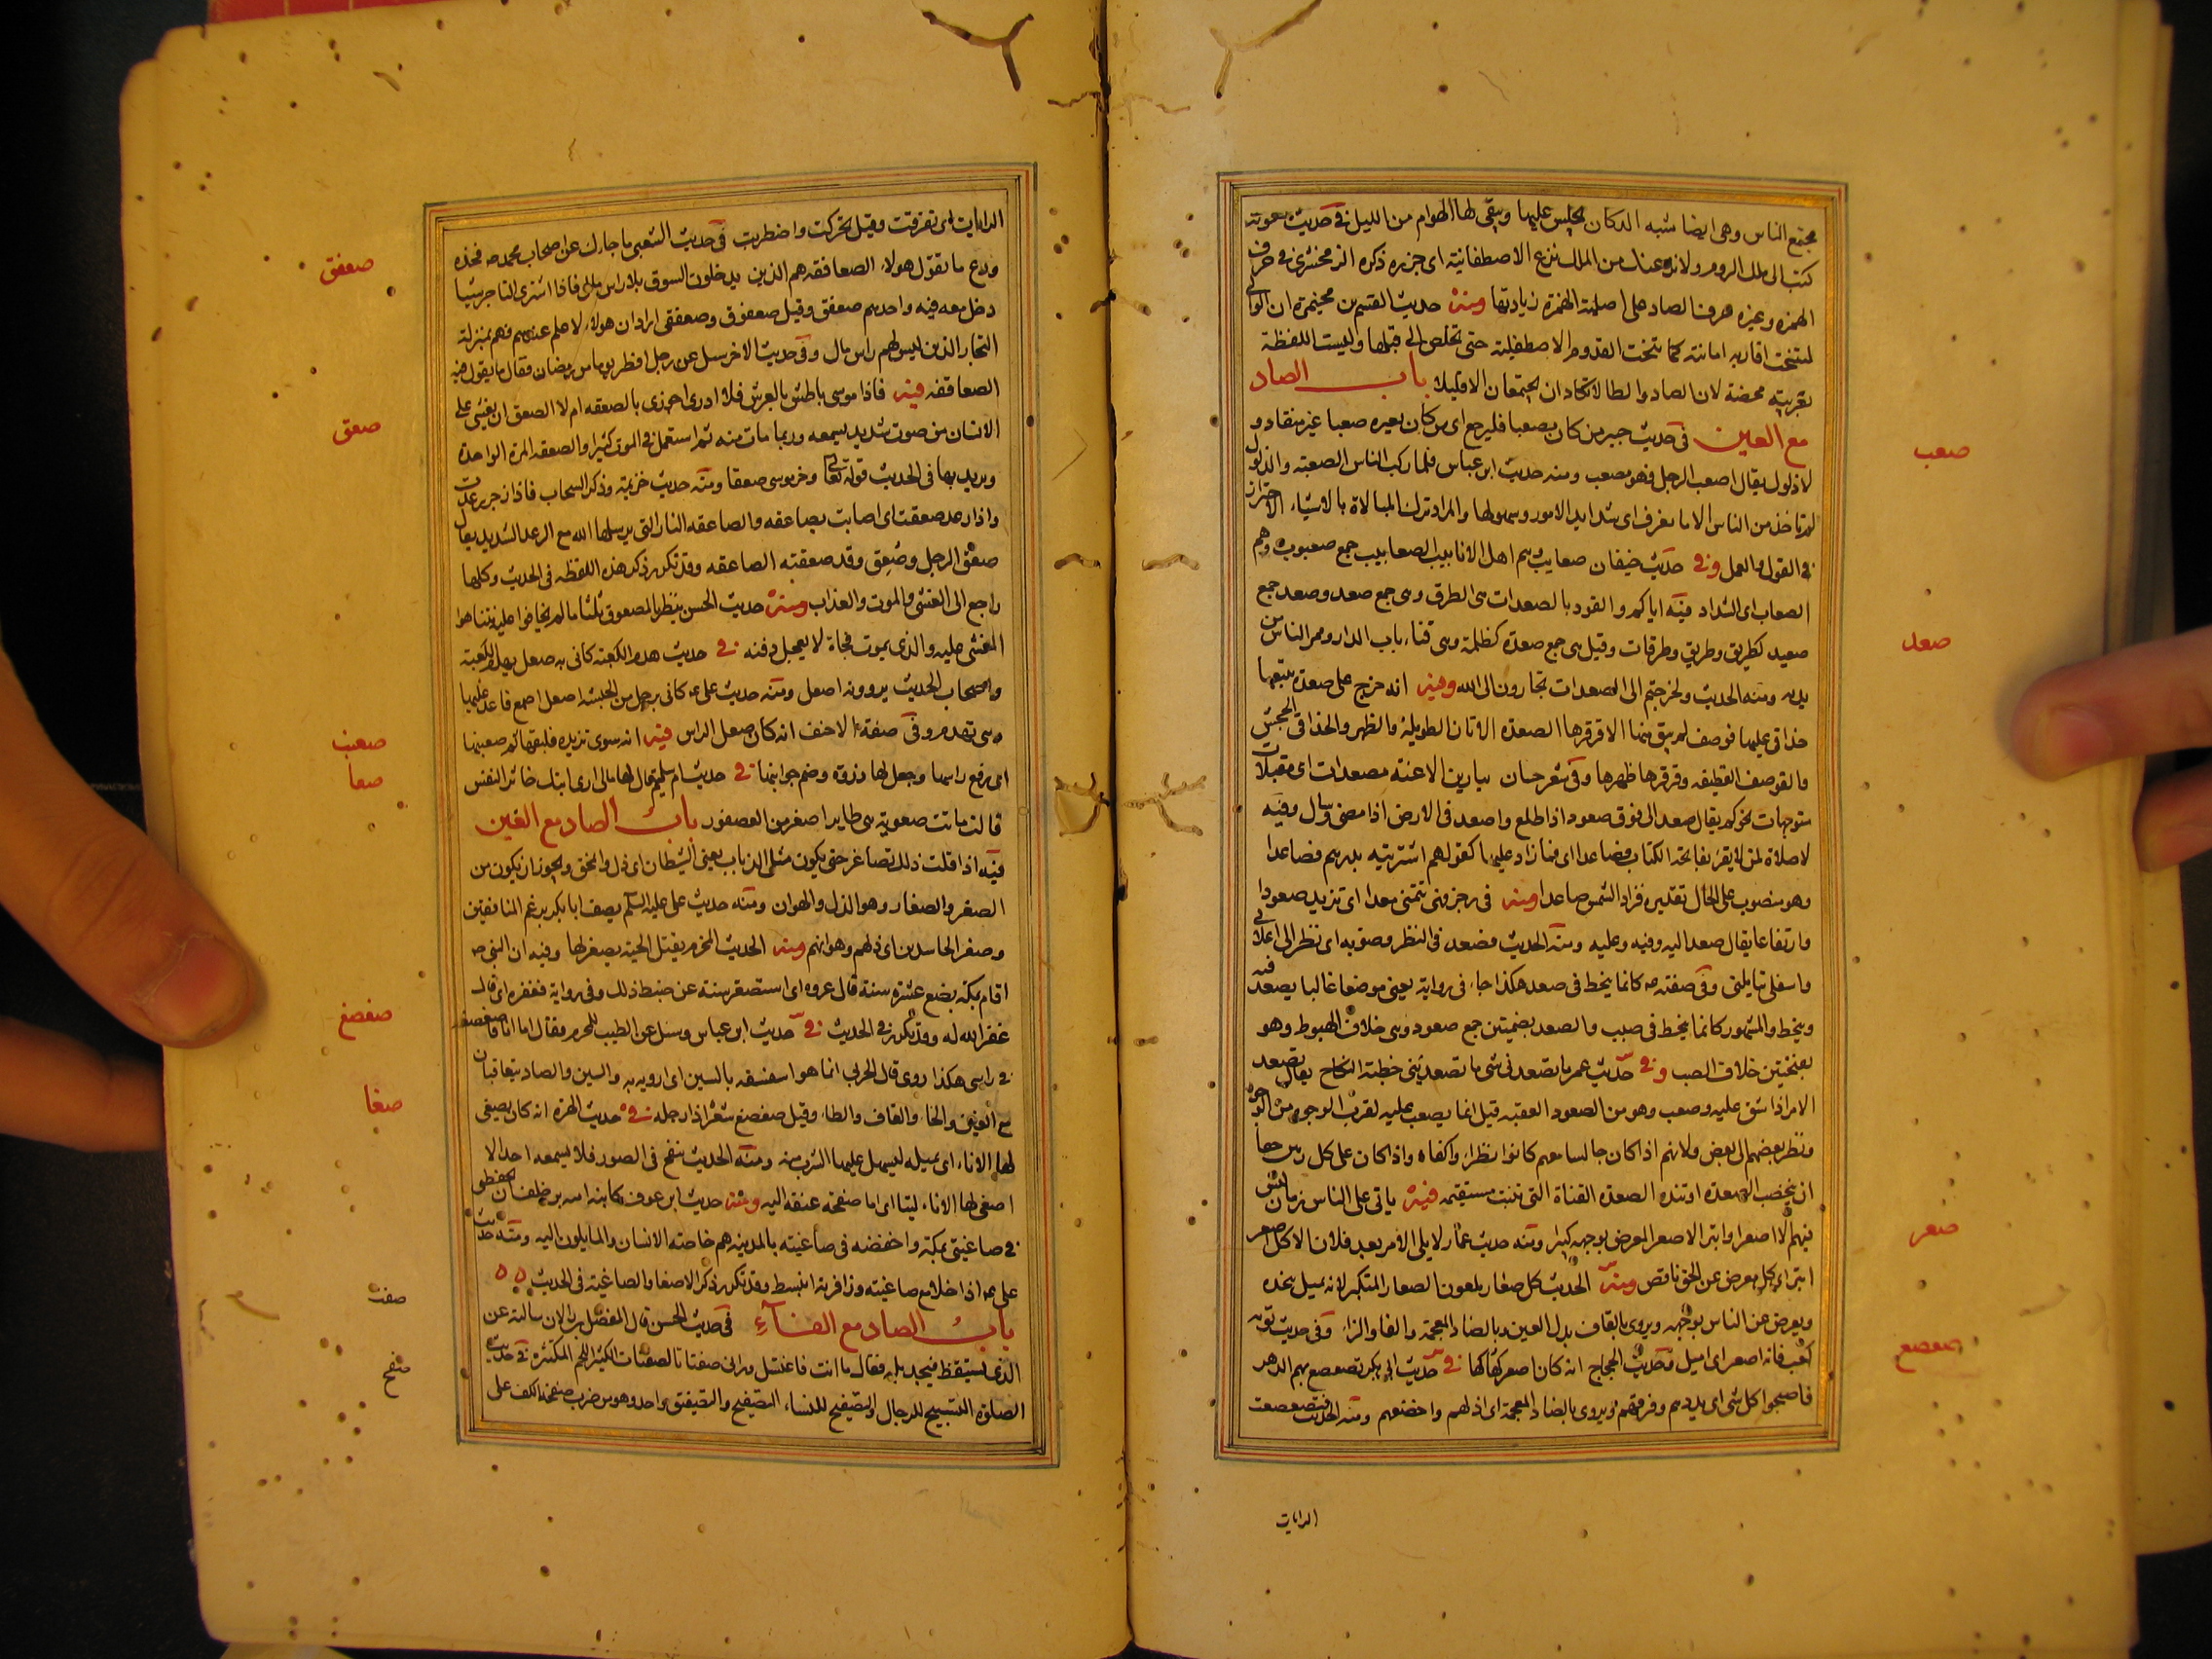 مجتمع الناس وهي ايضا شبه الدكان يجلس عليها ويتقى لها الهوام من الليل في حديث معوية
كتب الى ملك الروم ولانزعنك من الملك نزع الاصطفلينة اى جزره ذكره الزمخشري في حرف
الهمزه وغيره حرف الصاد على اصلية الهمزة زيادتها ومنه حديث القسم بن مخيمرة ان الوالى
لتنحت اقاربه امانته كما تنحت القدوم الاصطفلينة حتى تخلص الى قلبها وليست اللفظة
بعربية محضة لان الصاد والطا لا تكادان يجتمعان الا قليلا باب الصاد
صعب
مع العين في حديث خيبر من كان مصعبا فليرجع اى من كان بعيره صعبا غير منقاد و
لا ذلول يقال اصعب الرجل فهو مصعب ومنه حديث ابن عباس فلما ركب الناس الصعبة والذلول
لم ناخذ من الناس الا ما نعرف اى شدايد الامور وسهولها والمراد ترك المبالاة بالاشياء الاحتراز
في القول والعمل وفي حديث خيفان صعابيب وهم اهل الانابيب الصعابيب جمع صعبوب وهم
الصعاب اى الشداد فيه اياكم والقعود بالصعدات هى الطرق وهى جمع صعد وصعد جمع
صعد
صعيد كطريق وطرق وطرقات وقيل هى جمع صعدة كظلمة وهى فناء باب الدار وممر الناس من
يديه ومنه الحديث ولخرجتم الى الصعدات تجارون الى الله وفيه انه خرج على صعدة يتبعها
حذاقى عليها قوصف لم يبق منها الا قرقرها الصعدة الاتان الطويلة الظهر والحذاقى الجحش
والقوصف القطيفه وقرقرها ظهرها وفي شعر حسان يبارين الاعنة مصعدات اى مقبلات
متوجهات نحوكم يقال صعد الى فوق صعود اذا طلع واصعد في الارض اذا مضى وسار وفيه
لا صلاة لمن لا يقرء بفاتحة الكتاب فصاعدا اى فما زاد عليها كقولهم اشتريته بدرهم فصاعدا
وهو منصوب على الحال تقديره فزاد الثمن صاعدا ومنه في رجز فهى تنمى صعدا اى تزيد صعودا
وارتفاعا يقال صعد اليه وفيه وعليه ومنه الحديث فصعد في النظر وصوبه اى نظر الى اعلاى
واسفلى يتاملنى وفي صفته ص كانما ينحط في صعد هكذا جاء في رواية يعنى موضعا عاليا يصعد فيه
وينحط والمشهور كانما ينحط في صبب والصعد بضمتين جمع صعود وهى خلاف الهبوط وهو
بفتحتين خلاف الصبب وفي حديث عمر ما تصعدنى شى ما تصعدتنى خطبة النكاح يقال تصعده
الامر اذا شق عليه وصعب وهو من الصعود العقبة قيل انما يصعب عليه لقرب الوجوه من الوجوه
ونظر بعضهم الى بعض ولانهم اذا كان جالسا معهم كانوا نظراء واكفاء واذا كان على كل رئيس حقا
ان يخضب الصعدة او تندقا الصعدة القناة التى تنبت مستقيمة فيه ياتى على الناس زمان ليس
صعر
فيهم الا اصعر او ابتر الاصعر المعرض بوجهه كبرا ومنه حديث عمار لا يلى الامر بعد فلان الا كل اصعر
ابتر اى كل معرض عن الحق ناقص ومنه الحديث كل صعار ملعون الصعار المتكبر لانه يميل بخده
ويعرض عن الناس بوجهه ويروى بالقاف بدل العين وبالضاد المعجمة والفا والزاء وفي حديث توبة
صعصع
كعب فانا اصعر اى اميل وحديث الحجاج انه كان اصعر كهاكها في حديث ابى بكر تصعصع بهم الدهر
فاصبحوا كلا شى اى بددهم وفرقهم ويروى بالضاد المعجمة اى اذلهم واخضعهم ومنه الحديث فتصعصعت
الرايات
الرايات اى تفرقت وقيل تحركت واضطربت في حديث الشعبى ما جاءك عن اصحاب محمد ص فخذه
صعفق
ودع ما يقول هولاء الصعافقة هم الذين يدخلون السوق بلا راس مال فاذا اشترى التاجر شيئا
دخل معه فيه واحدهم صعفق وقيل صعفوق وصعفقى اراد ان هولاء لا علم عندهم فهم بمنزلة
التجار الذين ليس لهم راس مال وفي حديث الاخر سئل عن رجل افطر يوما من رمضان فقال ما يقول فيه
صعق
الصعافقه فيه فاذا موسى باطش بالعرش فلا ادرى اجوزى بالصعقه ام لا الصعق ان يغشى على
الانسان من صوت شديد يسمعه وربما مات منه ثم استعمل في الموت كثيرا والصعقه المرة الواحدة
ويريد بها في الحديث قوله تعالى وخر موسى صعقا ومنه حديث خزيمة وذكر السحاب فاذا زجر رعدت
واذا رعد صعقت اى اصابت بصاعقه والصاعقه النار التى يرسلها الله مع الرعد الشديد يقال
صعق الرجل وصعق وقد صعقته الصاعقه وقد تكرر ذكر هذه اللفظه في الحديث وكلها
راجع الى الغشى والموت والعذاب ومنه حديث الحسن ينتظر بالمصعوق ثلثا ما لم يخافوا عليه نتنا هو
المغشى عليه والذى يموت فجاة لا يعجل دفنه في حديث هدم الكعبة كانى به صعل يهدم الكعبة
واصحاب الحديث يروونه اصعل ومنه حديث على ع كانى برجل من الحبشة اصعل اصمع قاعد عليها
صعنب
وهى تهدم وفي صفة الاحنف انه كان صعل الراس فيه انه سوى ثريده فلبقها ثم صعنبها
صعا
اى رفع راسها وجعل لها ذروه وضم جوانبها في حديث ام سليم قال لها مالى ارى ابنك خاثر النفس
قالت ماتت صعوته هى طاير اصغر من العصفور باب الصاد مع الغين
فيه اذا قلت ذلك تصاغر حتى يكون مثل الذباب يعنى الشيطان اى ذل وامحق ويجوز ان يكون من
الصغر والصغار وهو الذل والهوان ومنه حديث على عليه السلم يصف ابا بكر برغم المنافقين
وصغر الحاسدين اى ذلهم وهوانهم ومنه الحديث المحرم يقتل الحية بصغر لها وفيه ان النبى ص
اقام بمكة بضع عشرة سنة قال عروه اى استصغر سنه عن ضبط ذلك وفي رواية فغفره اى قال
صغصغ
غفر الله له وقد تكرر في الحديث في حديث ابن عباس وسئل عن الطيب للمحرم فقال اما انا فاصغصغه
في راسى هكذا روى قال الحربى انما هو اسغسغه بالسين اى ارويه به والسين والصاد يتعاقبان
صغا
مع الغين والخاء والقاف والطاء وقيل صغصغ شعره اذا رجله في حديث الهرة انه كان يصغى
لها الاناء اى يميله ليسهل عليها الشرب منه ومنه الحديث ينفخ في الصور فلا يسمعه احد الا
اصغى ليتا اى اما صفحة عنقه اليه ومنه حديث ابن عوف كاتبت امية بن خلف ان يحفظنى
في صاغيتى بمكة واحفظه في صاغيته بالمدينة هم خاصة الانسان والمايلون اليه ومنه حديث
على ع اذا خلا مع صاغيته وزافرته انبسط وقد تكرر ذكر الاصغا والصاغية في الحديث
صفت
باب الصاد مع الفاء في حديث الحسن قال المفضل بن رالان سالته عن
صفح
الذى يستيقظ فيجد بلة فقال ما انت فاغتسل ورانى صفتاتا الصفتات الكثير اللحم المكتنزه في حديث
الصلوة التسبيح للرجال والتصفيح للنساء التصفيح والتصفيق واحد وهو من ضرب صفحة الكف على